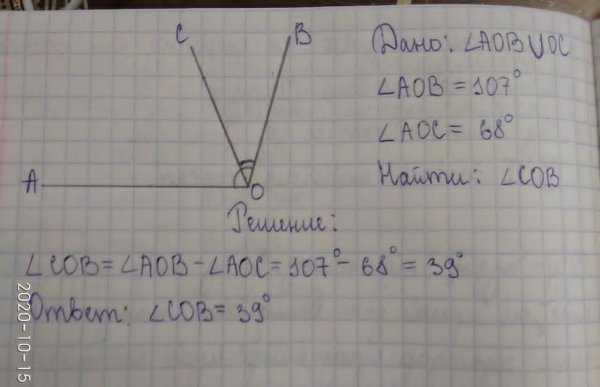 C
B
Дано: ∠AOB UOC
∠AOB = 107°
∠AOC = 68°
A
O
Найти: ∠COB
Решение:
∠COB = ∠AOB - ∠AOC = 107° - 68° = 39°
Ответ: ∠COB = 39°
2020-10-15